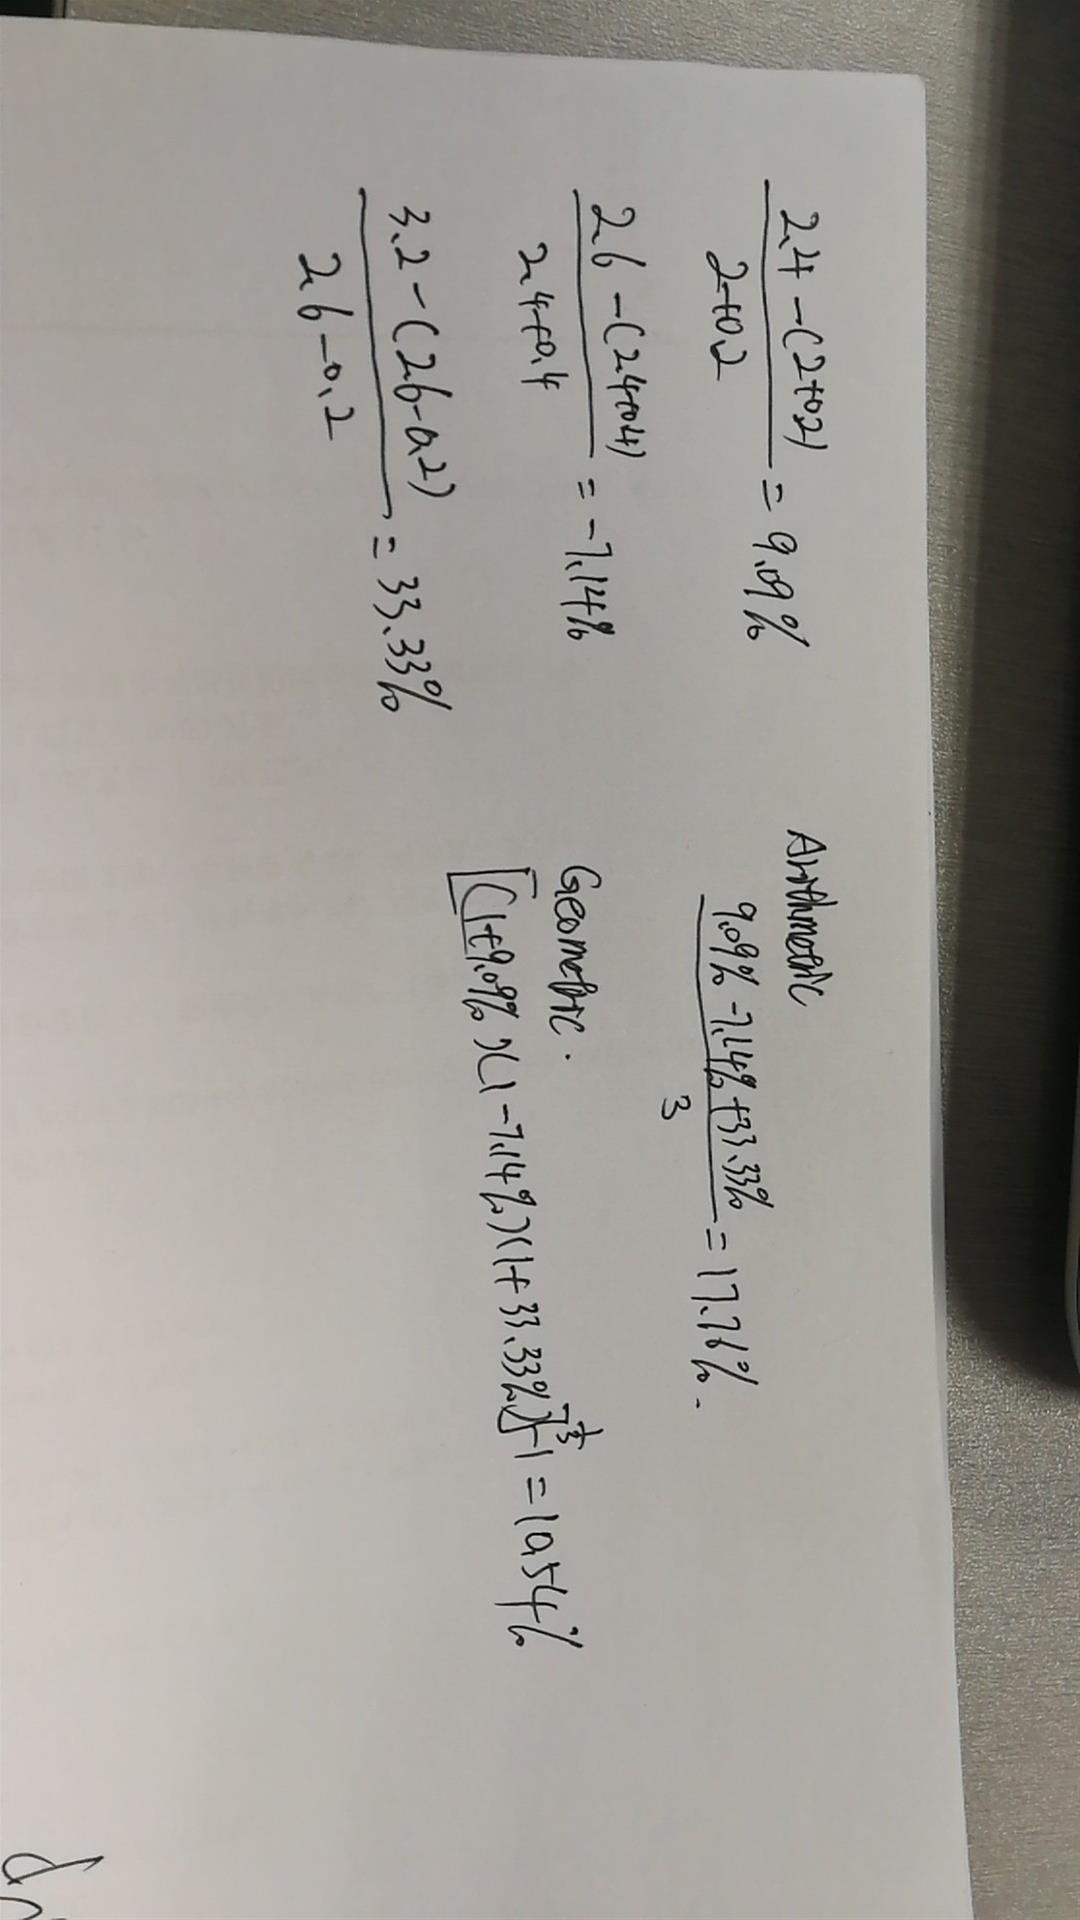 2.4-(2+0.2)
2+0.2
= 9.09%
2.6-(2.4+0.4)
2.4+0.4
= -7.14%
3.2-(2.6-0.2)
2.6-0.2
= 33.33%
Arithmetric
9.09% -7.14% +33.33%
3
= 17.76%.
Geometric.
[(1+9.09%)(1-7.14%)(1+33.33%)]^1/3 -1 = 10.54%